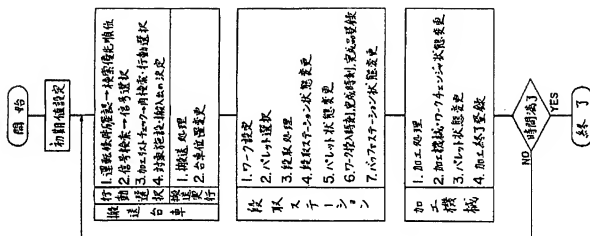 開始
初期値設定
搬送台車
行動選択
1.運転條件確認→検索優先順位
2.信号検索→信号選択
3.加工リストチェッカー内検索・行動選択
4.対象施設・搬入出の決定
搬送実行
1.搬送処理
2.台車位置変更
段取ステーション
1.ワーク設定
2.パレット選択
3.段取処理
4.段取ステーション状態変更
5.パレット状態変更
6.ワーク投入時刻,完成時刻,完成品登録
7.バッファステーション状態変更
加工機械
1.加工処理
2.加工機械・ワークチェンジャ状態変更
3.パレット状態変更
4.加工終了登録
時間満了
NO
YES
終了